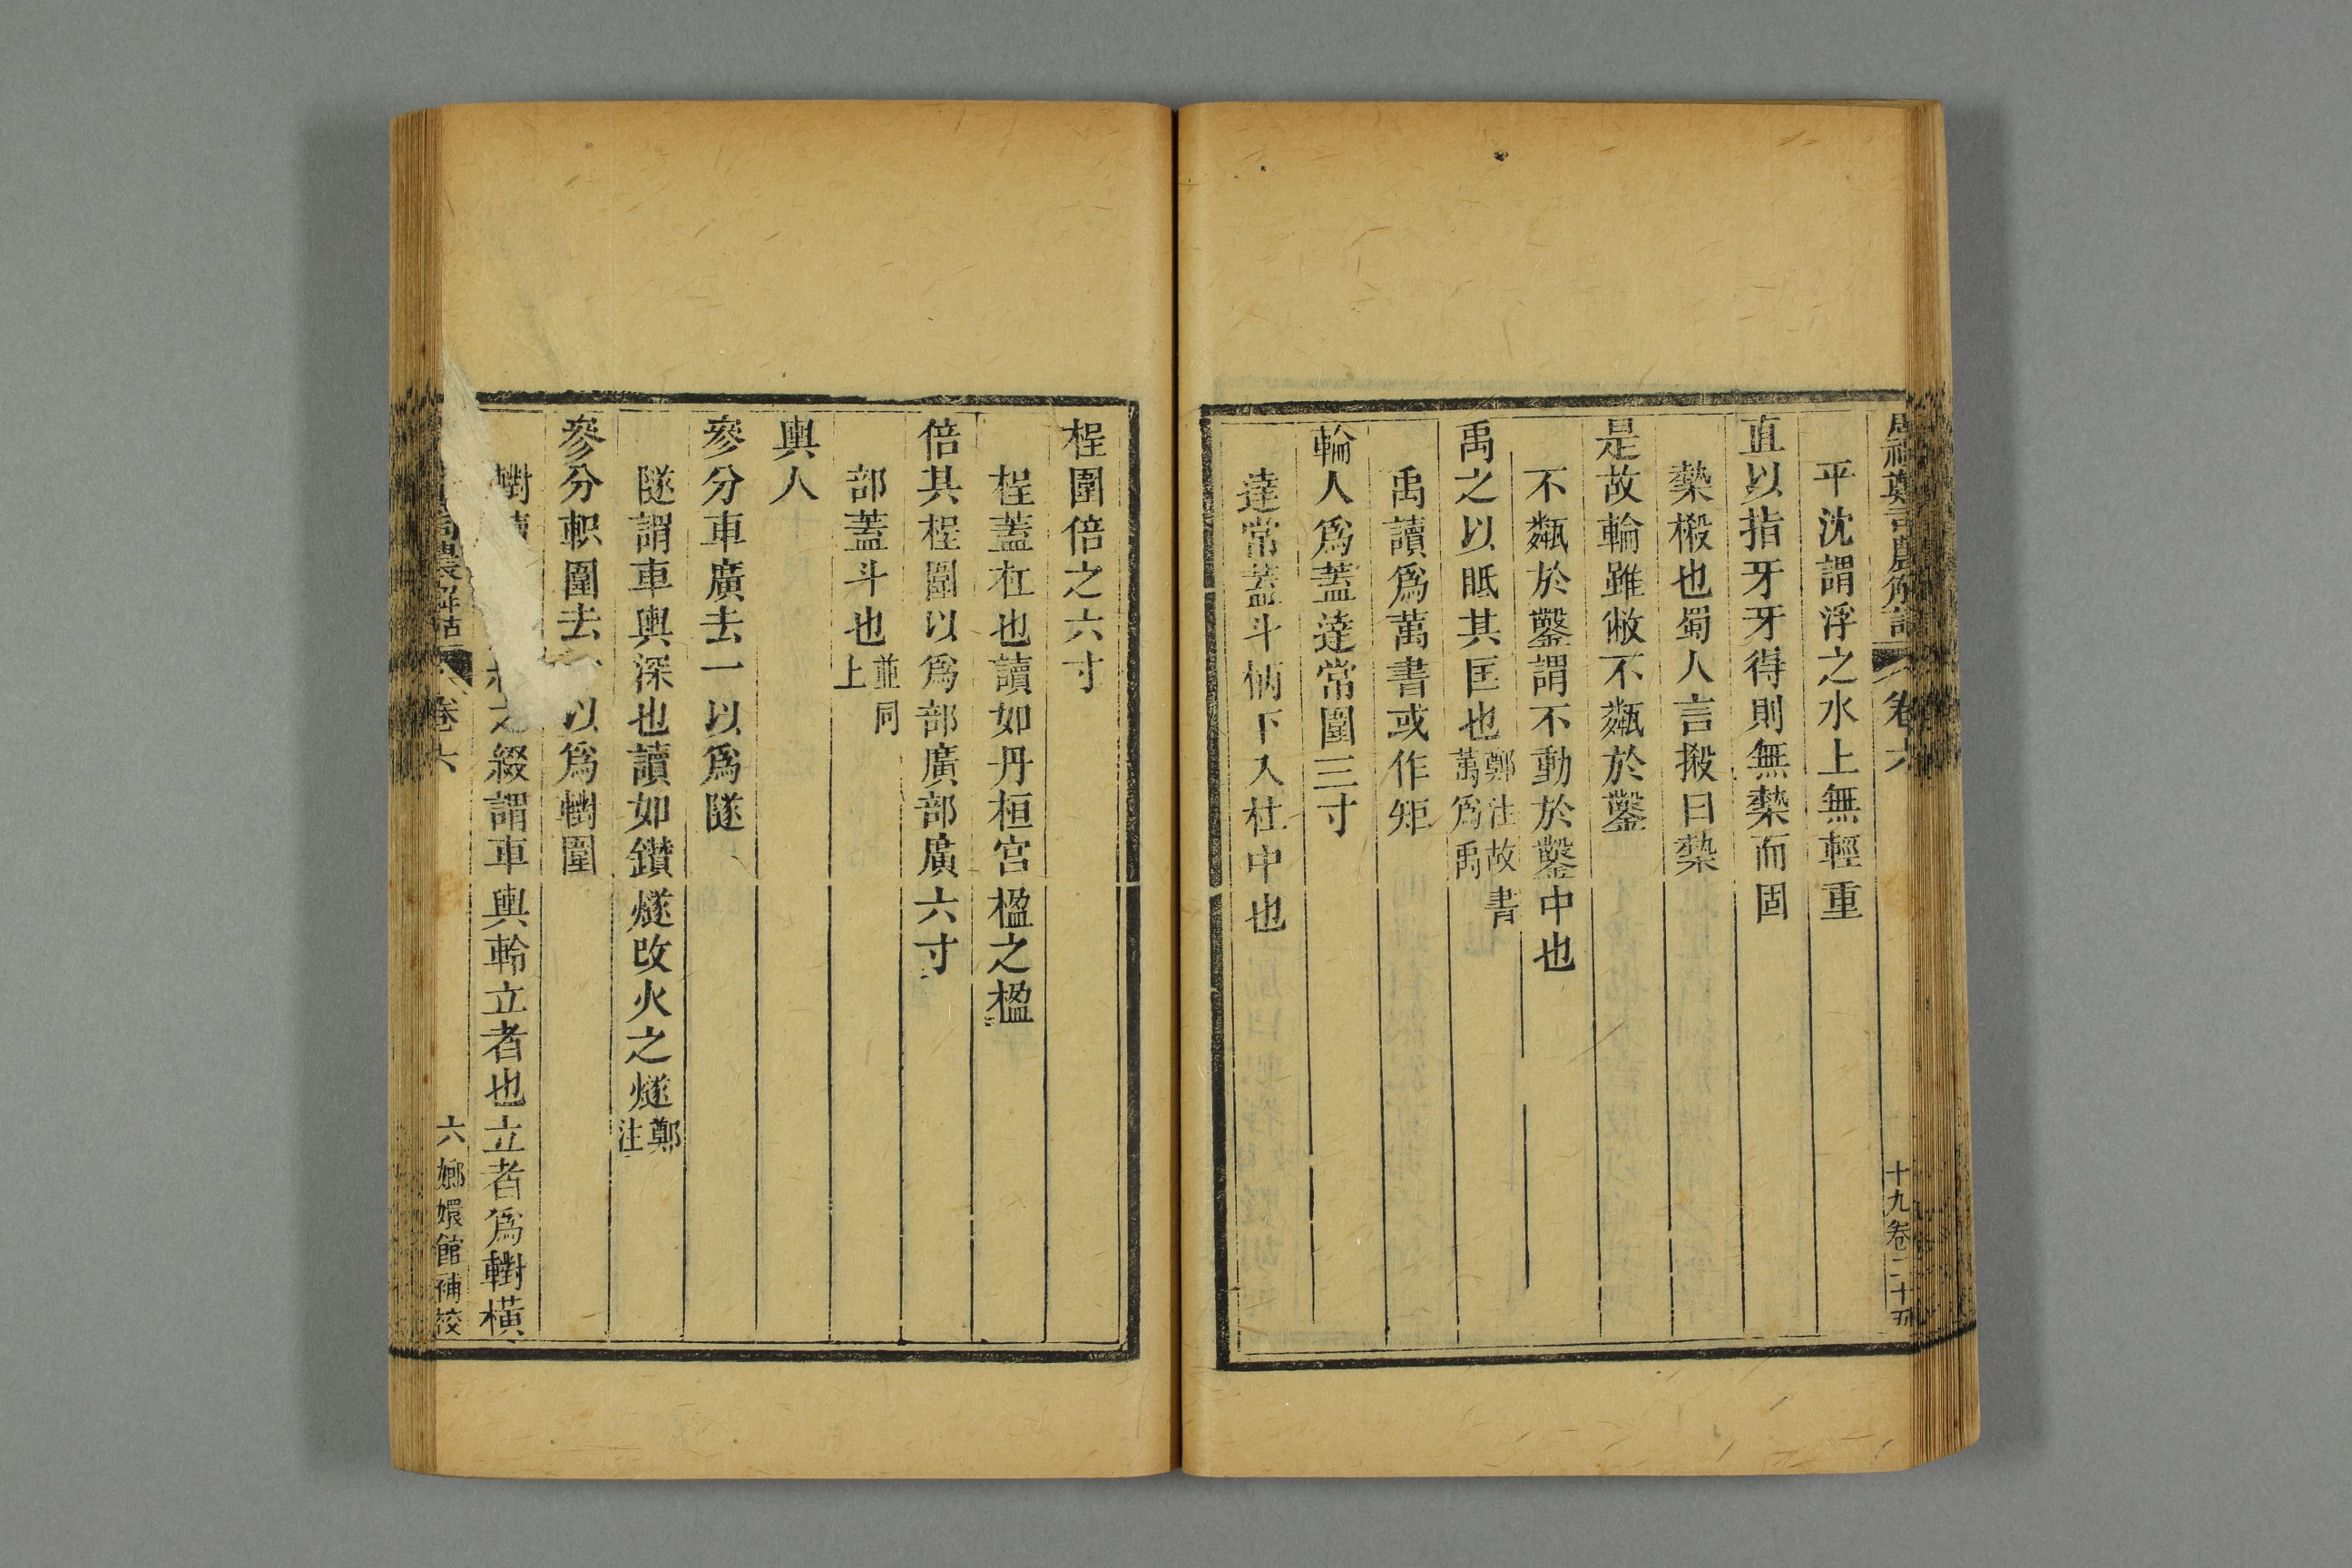 周禮鄭司農解詁 卷六 十九卷二十五
平沈謂浮之水上無輕重
直以指牙牙得則無槷而固
槷椴也蜀人言椴曰槷
是故輪雖敝不甐於鑿
不甐於鑿謂不動於鑿中也
禹之以眡其匡也鄭注故書萬爲禹
禹讀爲萬書或作矩
輪人爲蓋達常圍三寸
達常蓋斗柄下入杠中也
桯圍倍之六寸
桯蓋杠也讀如丹桓宮楹之楹
倍其桯圍以爲部廣部廣六寸
部蓋斗也並同上
輿人
參分車廣去一以爲隧
隧謂車輿深也讀如鑽燧改火之燧鄭注
參分軹圍去以爲轛圍
轛讀之綴謂車輿軨立者也立者爲轛橫
農解詁 卷六 六 嫏嬛館補校